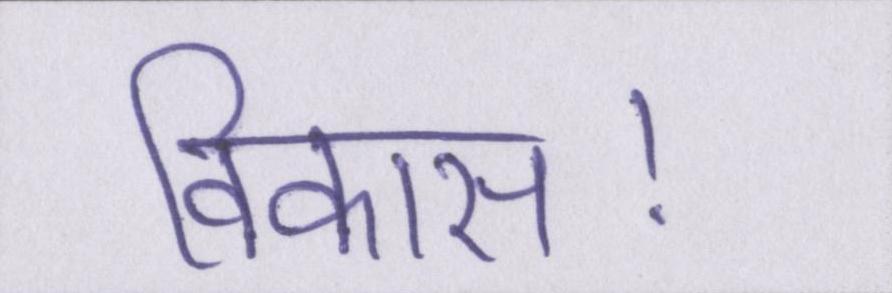 विकास!